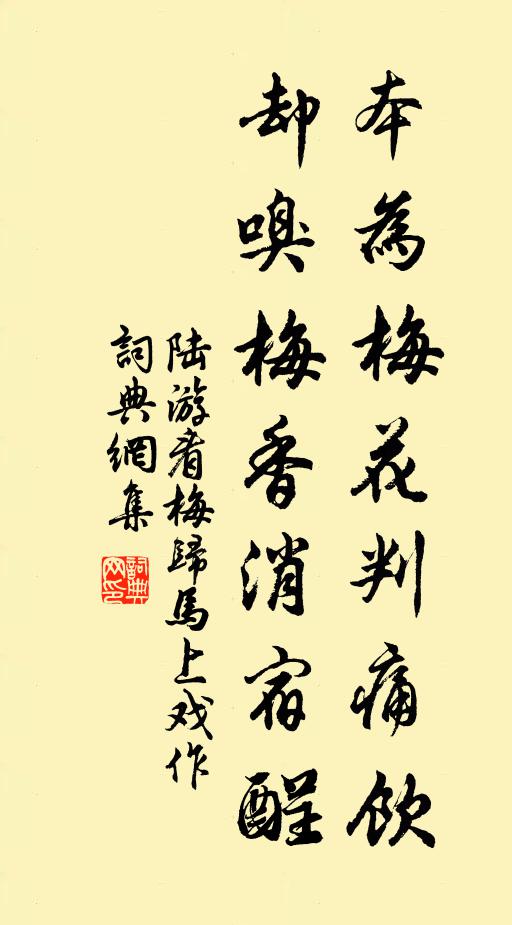 本為梅花判痛飲
却嗅梅香消宿醒
陆游看梅歸馬上戏作
詞典網集
詞典網印